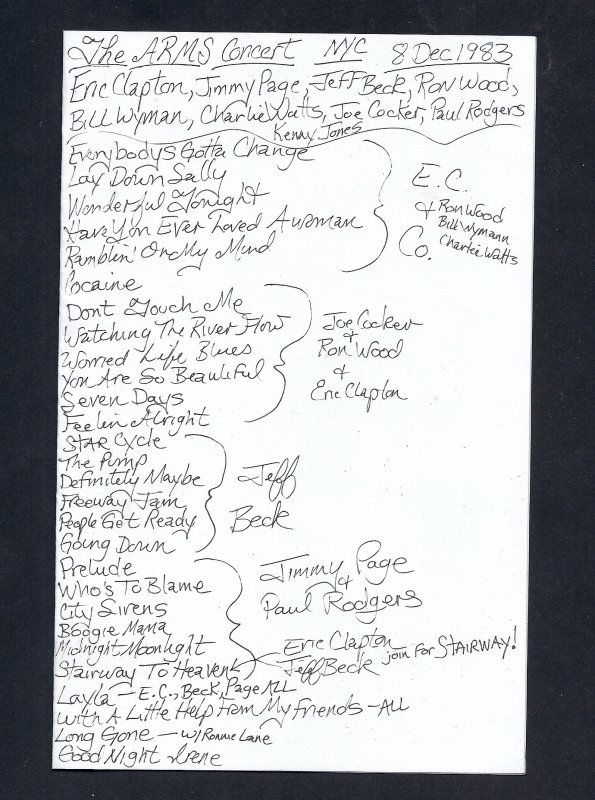 The ARMS Concert NYC 8 Dec 1983
Eric Clapton, Jimmy Page, Jeff Beck, Ron Wood,
Bill Wyman, Charlie Watts, Joe Cocker, Paul Rodgers
Kenny Jones
Everybodys Gotta Change
Lay Down Sally
Wonderful Tonight
Have You Ever Loved A Woman
Ramblin' On My Mind
Cocaine
E.C.
& Ron Wood
Bill Wymann
Charlie Watts
Co.
Dont Touch Me
Watching The River Flow
Worried Life Blues
You Are So Beautiful
Seven Days
Feelin Alright
Joe Cocker
&
Ron Wood
&
Eric Clapton
STAR Cycle
The Pump
Definitely Maybe
Freeway Jam
People Get Ready
Going Down
Jeff
Beck
Prelude
Who's To Blame
City Sirens
Boogie Mama
Midnight Moonlight
Stairway To Heaven
Jimmy Page
&
Paul Rodgers
Eric Clapton
Jeff Beck join For STAIRWAY!
Layla - E.C., Beck, Page ALL
With A Little Help From My Friends - ALL
Long Gone - W/ Ronnie Lane
Good Night Irene